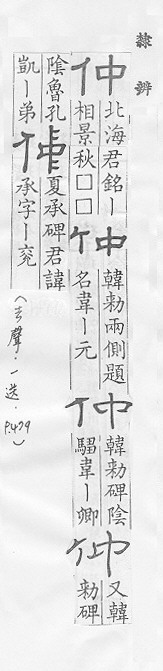 隸辨
仲
北海君銘ー
相景秋□□
仲
韓勑兩側題
名韋ー元
仲
韓勑碑陰
騶韋ー卿
仲
又韓
勑碑
陰魯孔
凱ー弟
仲
夏承碑君諱
承字ー兗
(去聲．一送．